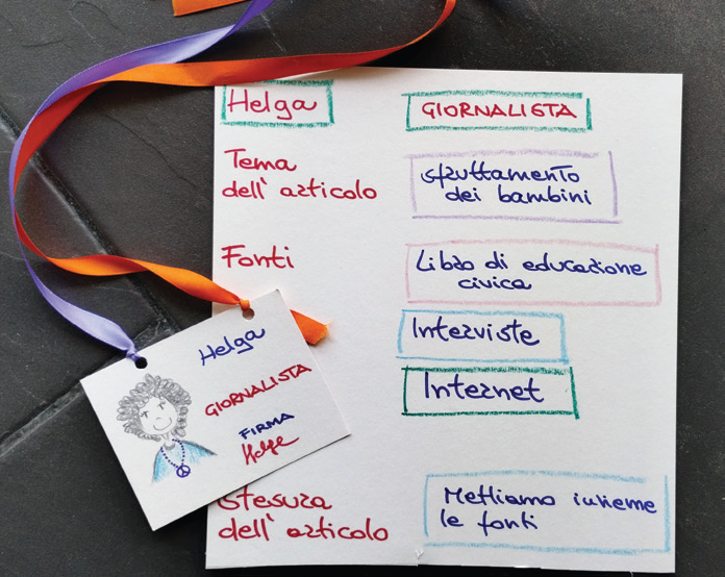 Helga
GIORNALISTA
Tema
dell'articolo
sfruttamento
dei bambini
Fonti
Libro di educazione
civica
Interviste
Internet
Stesura
dell'articolo
Mettiamo insieme
le fonti
Helga
GIORNALISTA
FIRMA
Helga